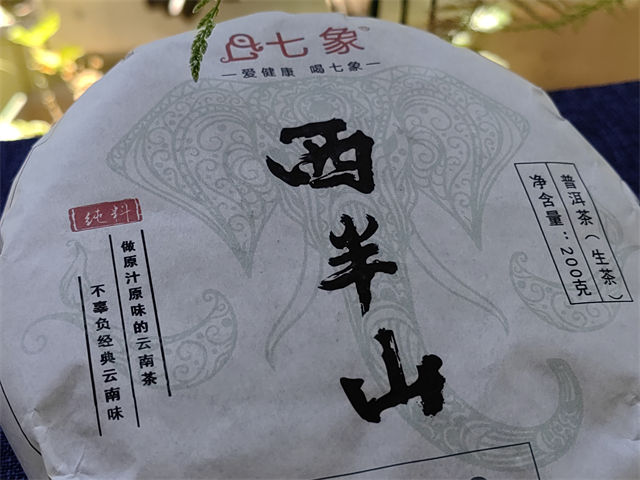 七象
爱健康 喝七象
西半山
普洱茶（生茶）
净含量：200克
纯料
做原汁原味的云南茶
不辜负经典云南味